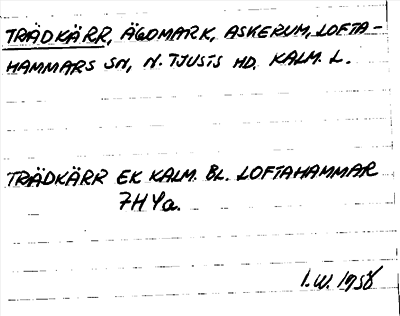 TRÄDKÄRR, ÄGOMARK, ASKERUM, LOFTA-
HAMMARS SN, N. TJUSTS HD. KALM. L.
TRÄDKÄRR EK KALM. BL. LOFTAHAMMAR
7H4a.
I.W. 1958